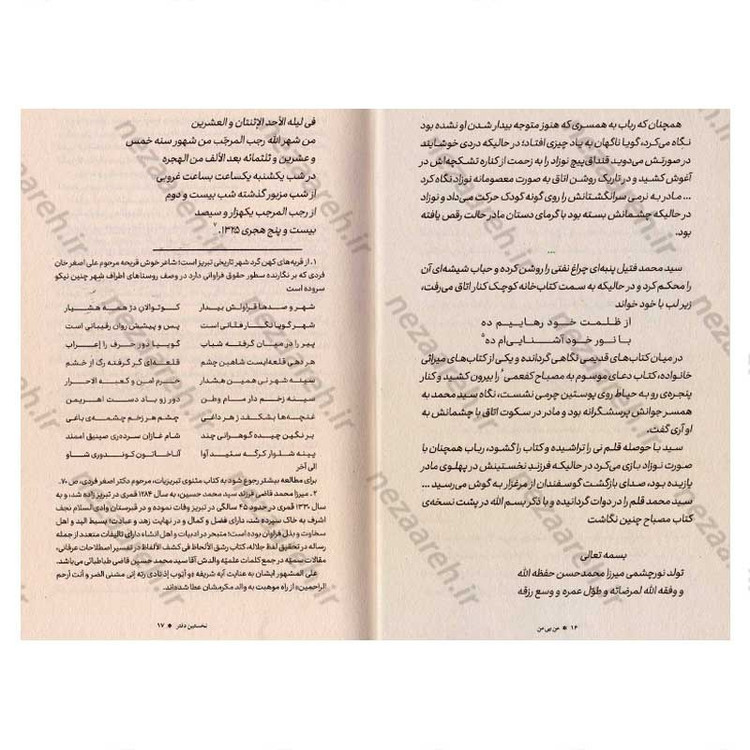 همچنان که رباب به همسری که هنوز متوجه بیدار شدن او نشده بود
نگاه می‌کرد، گویا ناگهان به یاد چیزی افتاد؛ در حالیکه دردی خوشایند
در صورتش می‌دوید قنداق‌پیچ نوزاد را به زحمت از کناره تشکچه‌اش در
آغوش کشید و در تاریک روشن اتاق به صورت معصومانه نوزاد نگاه کرد
... مادر به نرمی سرانگشتانش را روی گونه کودک حرکت می‌داد و نوزاد
در حالیکه چشمانش بسته بود با گرمای دستان مادر حالت رقص یافته
بود.
...
سید محمد فتیل پنبه‌ای چراغ نفتی را روشن کرده و حباب شیشه‌ای آن
را محکم کرد و در حالیکه به سمت کتاب‌خانه کوچک کنار اتاق می‌رفت،
زیر لب با خود خواند
از ظلمت خود رهاییم ده
با نور خود آشناییم ده
در میان کتاب‌های قدیمی نگاهی گردانده و یکی از کتاب‌های میراثی
خانواده، کتاب دعای موسوم به مصباح کفعمی را بیرون کشید و کنار
پنجره‌ی رو به حیاط روی پوستین چرمی نشست، نگاه سید محمد به
همسر جوانش پرسشگرانه بود و مادر در سکوت اتاق با چشمانش به
او آری گفت.
سید با حوصله قلم نی را تراشیده و کتاب را گشود، رباب همچنان با
صورت نوزاد بازی می‌کرد در حالیکه فرزند نخستینش در پهلوی مادر
یازیده بود، صدای بازگشت گوسفندان از مرغزار به گوش می‌رسید ...
سید محمد قلم را در دوات گردانیده و با ذکر بسم الله در پشت نسخه‌ی
کتاب مصباح چنین نگاشت
بسمه تعالی
تولد نورچشمی میرزا محمدحسن حفظه الله
و وفقه الله لمرضاته و طوّل عمره و وسع رزقه
۱۶ ● من بی من
فی لیله الأحد الإثنتان و العشرین
من شهر الله رجب المرجّب من شهور سنه خمس
و عشرین و ثلثمائه بعد الألف من الهجره
در شب یکشنبه یکساعت بساعت غروبی
از شب مزبور گذشته شب بیست و دوم
از رجب المرجب یکهزار و سیصد
بیست و پنج هجری ۱۳۲۵. ۲
۱. از قریه‌های کهن گرد شهر تاریخی تبریز است؛ شاعر خوش قریحه مرحوم علی اصغر خان
فردی که بر نگارنده سطور حقوق فراوانی دارد در وصف روستاهای اطراف شهر چنین نیکو
سروده است
شهر و صدها قراولش بیدار کوتوالان دژ همه هشیار
شهر گویا نگار فتانی است پس و پیشش روان رقیبانی است
پیر را در میان گرفته شباب گویيا دور حرف را إعراب
هر دهی قلعه‌ایست شاهین چشم قلعه‌ای گر گرفته رگ از خشم
سینه شهر نی همین هشدار حرم امن و کعبه الاحرار
سینه زخم دار مام وطن دور زو باد دست اهریمن
غنچه‌ها بشکفد ز هر داغی چشم هر زخم چشمه‌ی باغی
بر نگین چیده گوهرانی چند شام غازان سرده‌ری صینیق امند
پینه شلوار کرگه ستید آوا آناخاتون کوندوری شاو
الی آخر
برای مطالعه بیشتر رجوع شود به کتاب مثنوی تبریزیات، مرحوم دکتر اصغر فردی، ص ۷۰.
۲. میرزا محمد قاضی فرزند سید محمد حسین، به سال ۱۲۸۴ قمری در تبریز زاده شد، و به
سال ۱۳۳۰ قمری در حدود ۴۵ سالگی در تبریز وفات نموده و در قبرستان وادی لسلام نجف
اشرف به خاک سپرده شد، دارای فضل و کمال و در نهایت زهد و عبادت؛ بسیط الید و اهل
سخاوت و بذل فراوان بوده است؛ متبحر در ادبیات و اهل انشاء دارای تالیفات متعدد از جمله
رساله در تحقیق لفظ جلاله، کتاب رشق الألحاظ فی کشف الألفاظ در تفسیر اصطلاحات عرفانی،
مقالات سمیّه در جمع کلمات علمیّه والدش آقا سید محمد حسین قاضی طباطبائی می‌باشد.
علی المشهور ایشان به عنایت آیه شریفه «و أیّوب إذ نادی ربّه إنی مسّنی الضر و أنت أرحم
الراحمین» از راه موهبت به والد مکرمشان عطا شده‌اند.
نخستین دفتر ● ۱۷
nezaareh.ir